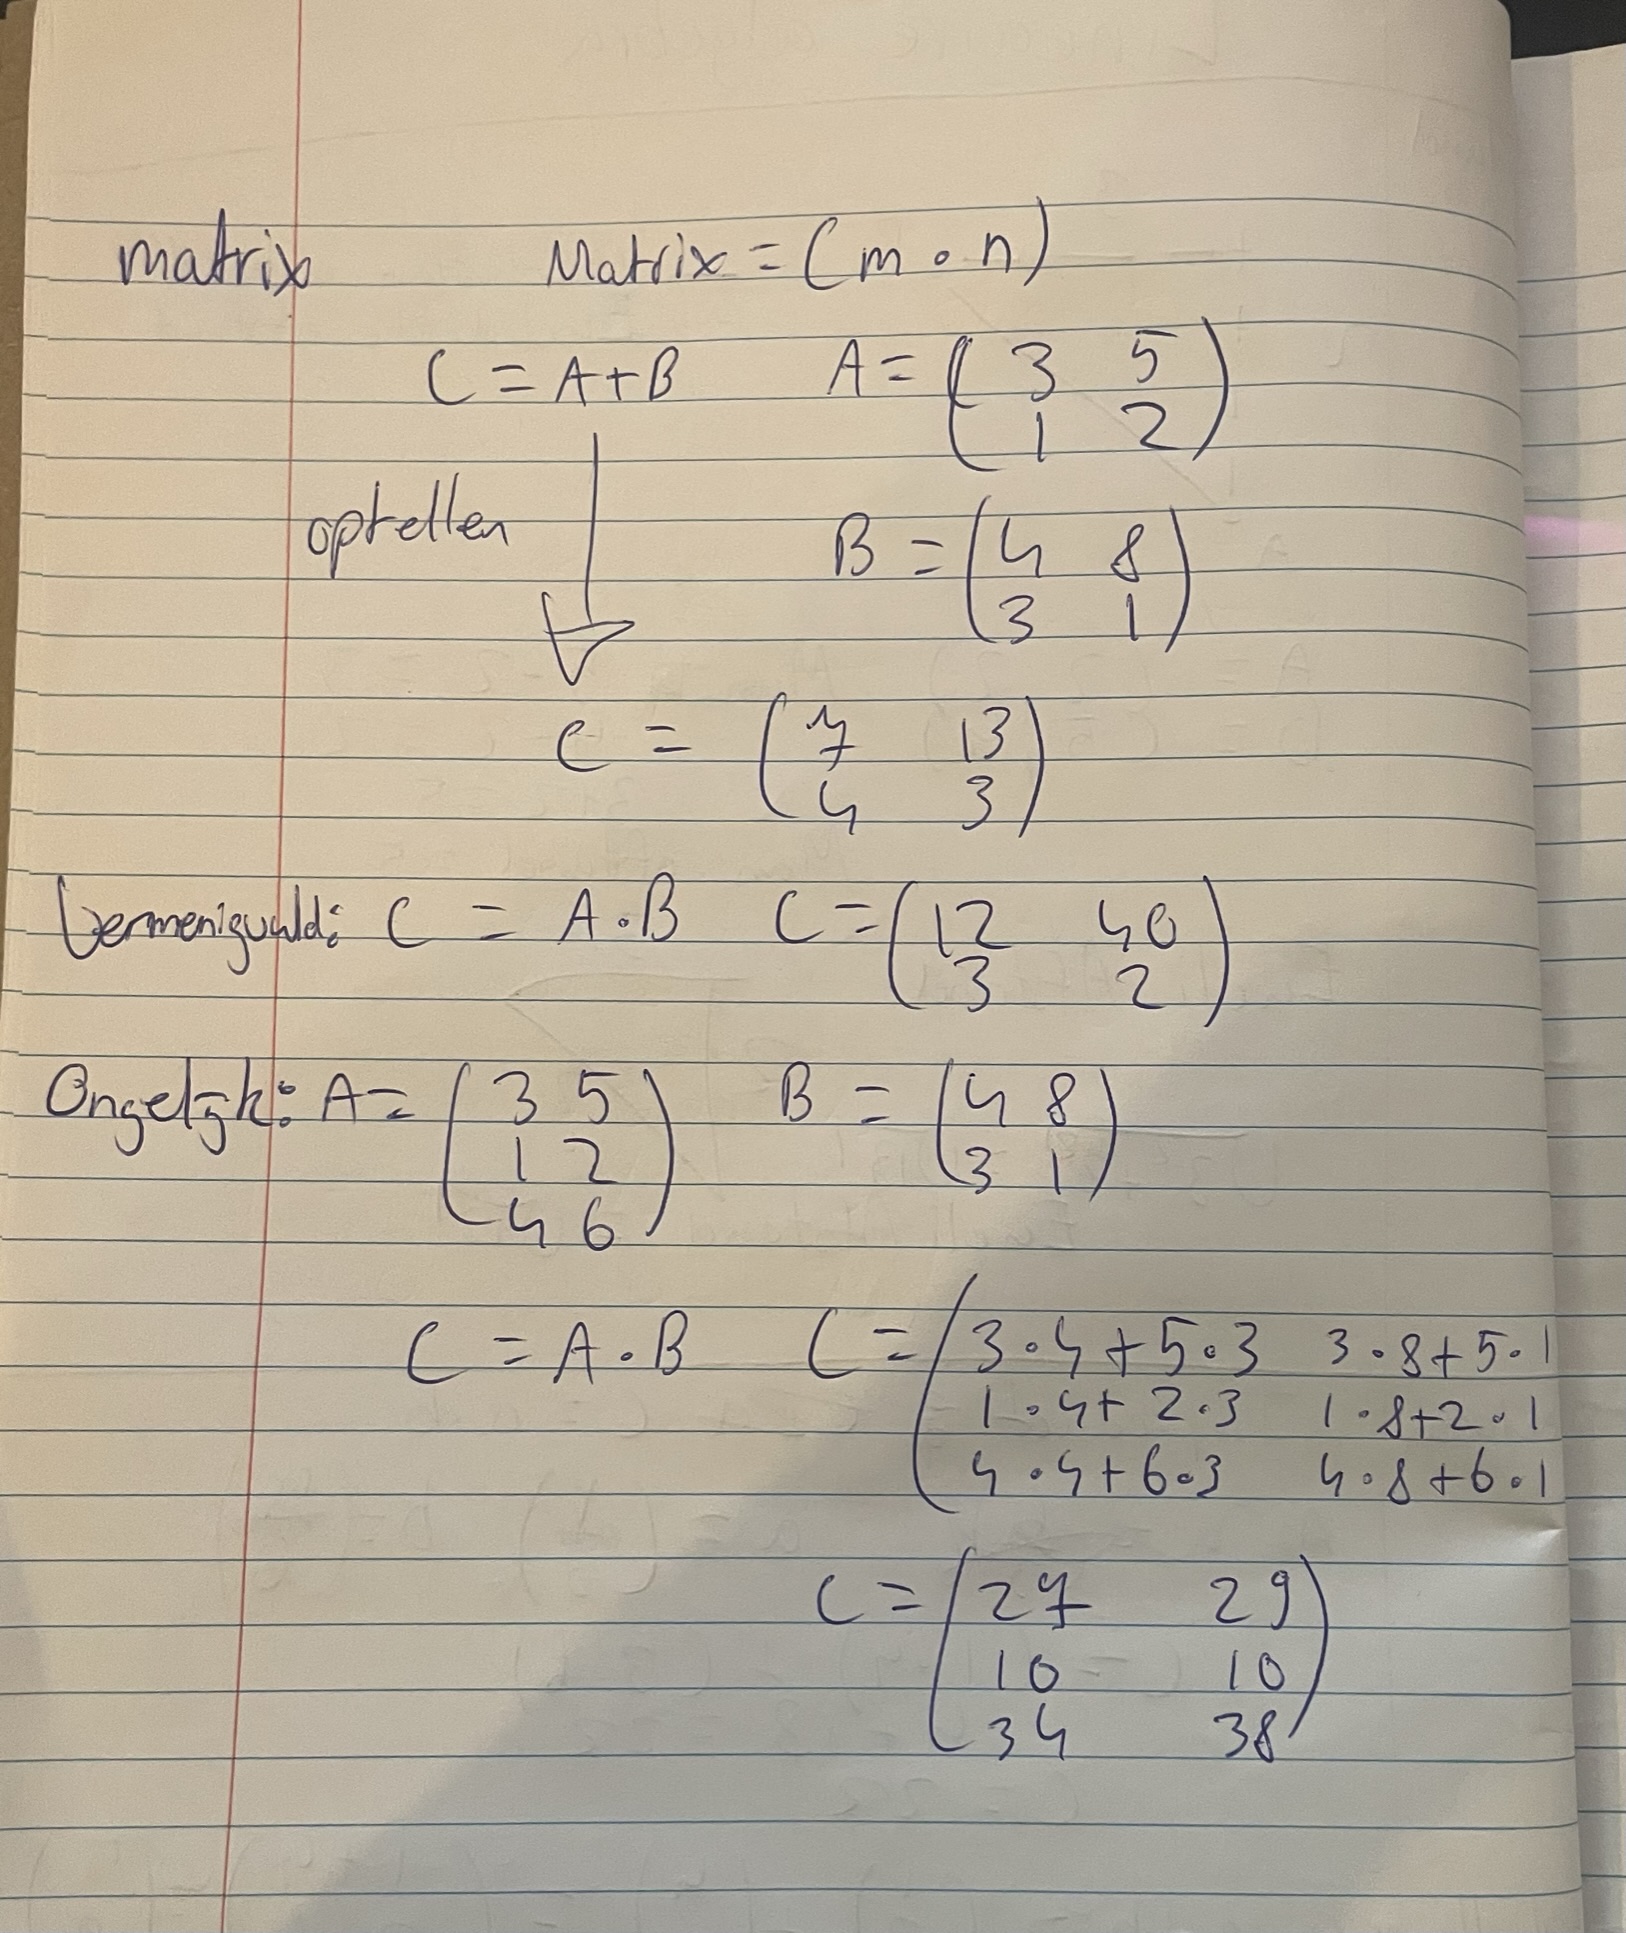 matrix Matrix = (m · n)
C = A+B A = ( 3 5 )
( 1 2 )
optellen B = ( 4 8 )
( 3 1 )
C = ( 7 13 )
( 4 3 )
Vermenigvuld: C = A · B C = ( 12 40 )
( 3 2 )
Ongelijk: A = ( 3 5 ) B = ( 4 8 )
( 1 2 ) ( 3 1 )
( 4 6 )
C = A · B C = ( 3·4+5·3 3·8+5·1
1·4+2·3 1·8+2·1
4·4+6·3 4·8+6·1
C = ( 27 29 )
( 10 10 )
( 34 38 )